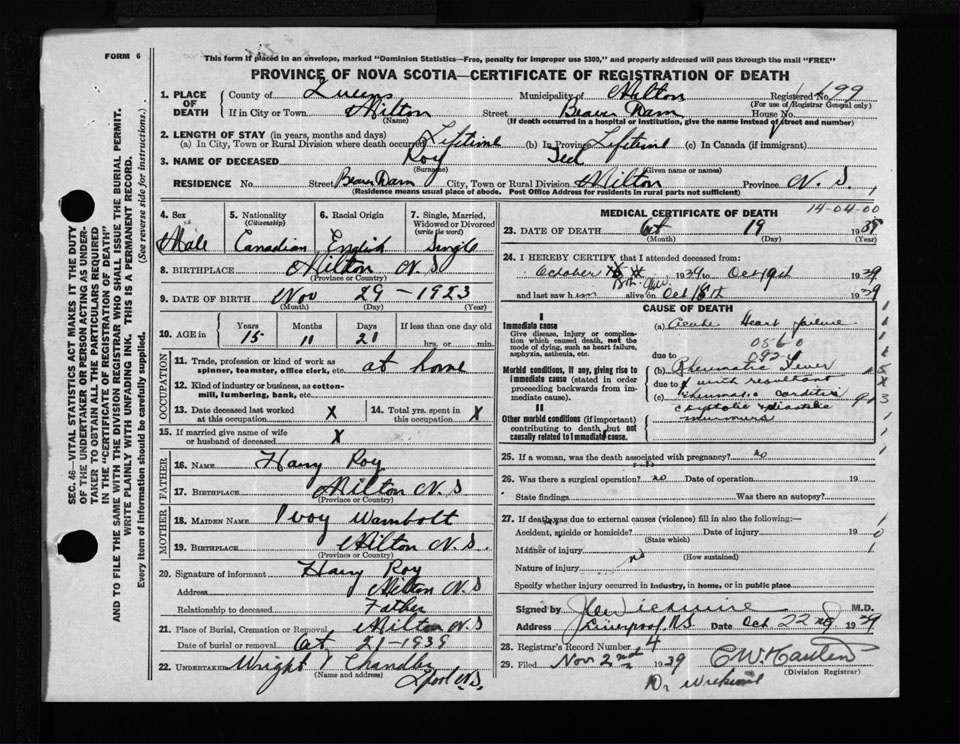 FORM 6
This form if placed in an envelope, marked "Dominion Statistics—Free, penalty for improper use $300," and properly addressed will pass through the mail "FREE"
PROVINCE OF NOVA SCOTIA—CERTIFICATE OF REGISTRATION OF DEATH
SEC. 46—VITAL STATISTICS ACT MAKES IT THE DUTY
OF THE UNDERTAKER OR PERSON ACTING AS UNDER-
TAKER TO OBTAIN ALL THE PARTICULARS REQUIRED
IN THE "CERTIFICATE OF REGISTRATION OF DEATH"
AND TO FILE THE SAME WITH THE DIVISION REGISTRAR WHO SHALL ISSUE THE BURIAL PERMIT.
WRITE PLAINLY WITH UNFADING INK. THIS IS A PERMANENT RECORD.
Every item of Information should be carefully supplied. (See reverse side for instructions.)
1. PLACE OF DEATH County of Queens Municipality of Milton Registered No. 99
(For use of Registrar General only)
If in City or Town Milton Street Beaver Dam House No.
(Name) (If death occurred in a hospital or institution, give the name instead of street and number)
2. LENGTH OF STAY (in years, months and days)
(a) In City, Town or Rural Division where death occurred Lifetime (b) In Province Lifetime (c) In Canada (if immigrant)
3. NAME OF DECEASED Roy Ted
(Surname) (Given name or names)
RESIDENCE No. Street Beaver Dam City, Town or Rural Division Milton Province N. S.
(Residence means usual place of abode. Post Office Address for residents in rural parts not sufficient)
4. Sex 5. Nationality (Citizenship) 6. Racial Origin 7. Single, Married, Widowed or Divorced (write the word)
Male Canadian English Single
8. BIRTHPLACE Milton N S
(Province or Country)
9. DATE OF BIRTH Nov 29 - 1923
(Month) (Day) (Year)
10. AGE in Years Months Days If less than one day old
15 11 21 hrs. or min.
OCCUPATION
11. Trade, profession or kind of work as spinner, teamster, office clerk, etc. at home
12. Kind of industry or business, as cotton-mill, lumbering, bank, etc.
13. Date deceased last worked at this occupation X 14. Total yrs. spent in this occupation X
15. If married give name of wife or husband of deceased X
FATHER
16. NAME Harry Roy
17. BIRTHPLACE Milton N. S
(Province or Country)
MOTHER
18. MAIDEN NAME Ivoy Wambolt
19. BIRTHPLACE Milton N. S.
(Province or Country)
20. Signature of informant Harry Roy
Address Milton N S
Relationship to deceased Father
21. Place of Burial, Cremation or Removal Milton N S
Date of burial or removal Oct 21 - 1939
22. UNDERTAKER Wright Chandler
(Name and address) L'pool N.S.
MEDICAL CERTIFICATE OF DEATH
14-04-00
23. DATE OF DEATH Oct 19 1939
(Month) (Day) (Year)
24. I HEREBY CERTIFY that I attended deceased from:
October 1939 to Oct 19th 1939
and last saw him alive on Oct 18th 1939
CAUSE OF DEATH
I
Immediate cause
Give disease, injury or complication which caused death, not the mode of dying, such as heart failure, asphyxia, asthenia, etc.
(a) Acute Heart failure
0560
due to 092
Morbid conditions, if any, giving rise to immediate cause (stated in order proceeding backwards from immediate cause).
(b) Rheumatic Fever
due to with resultant
(c) Rheumatic carditis
II
Other morbid conditions (if important) contributing to death but not causally related to Immediate cause.
systolic & diastolic
murmurs
25. If a woman, was the death associated with pregnancy? no
26. Was there a surgical operation? no Date of operation 19
State findings Was there an autopsy?
27. If death was due to external causes (violence) fill in also the following:—
Accident, suicide or homicide? Date of injury 19
(State which)
Manner of injury no
(How sustained)
Nature of injury
Specify whether injury occurred in industry, in home, or in public place
Signed by J C Wickwire M.D.
Address Liverpool, N.S Date Oct. 22nd 1939
28. Registrar's Record Number 4
29. Filed Nov 2nd 1939
(Division Registrar)
Dr Wickwire